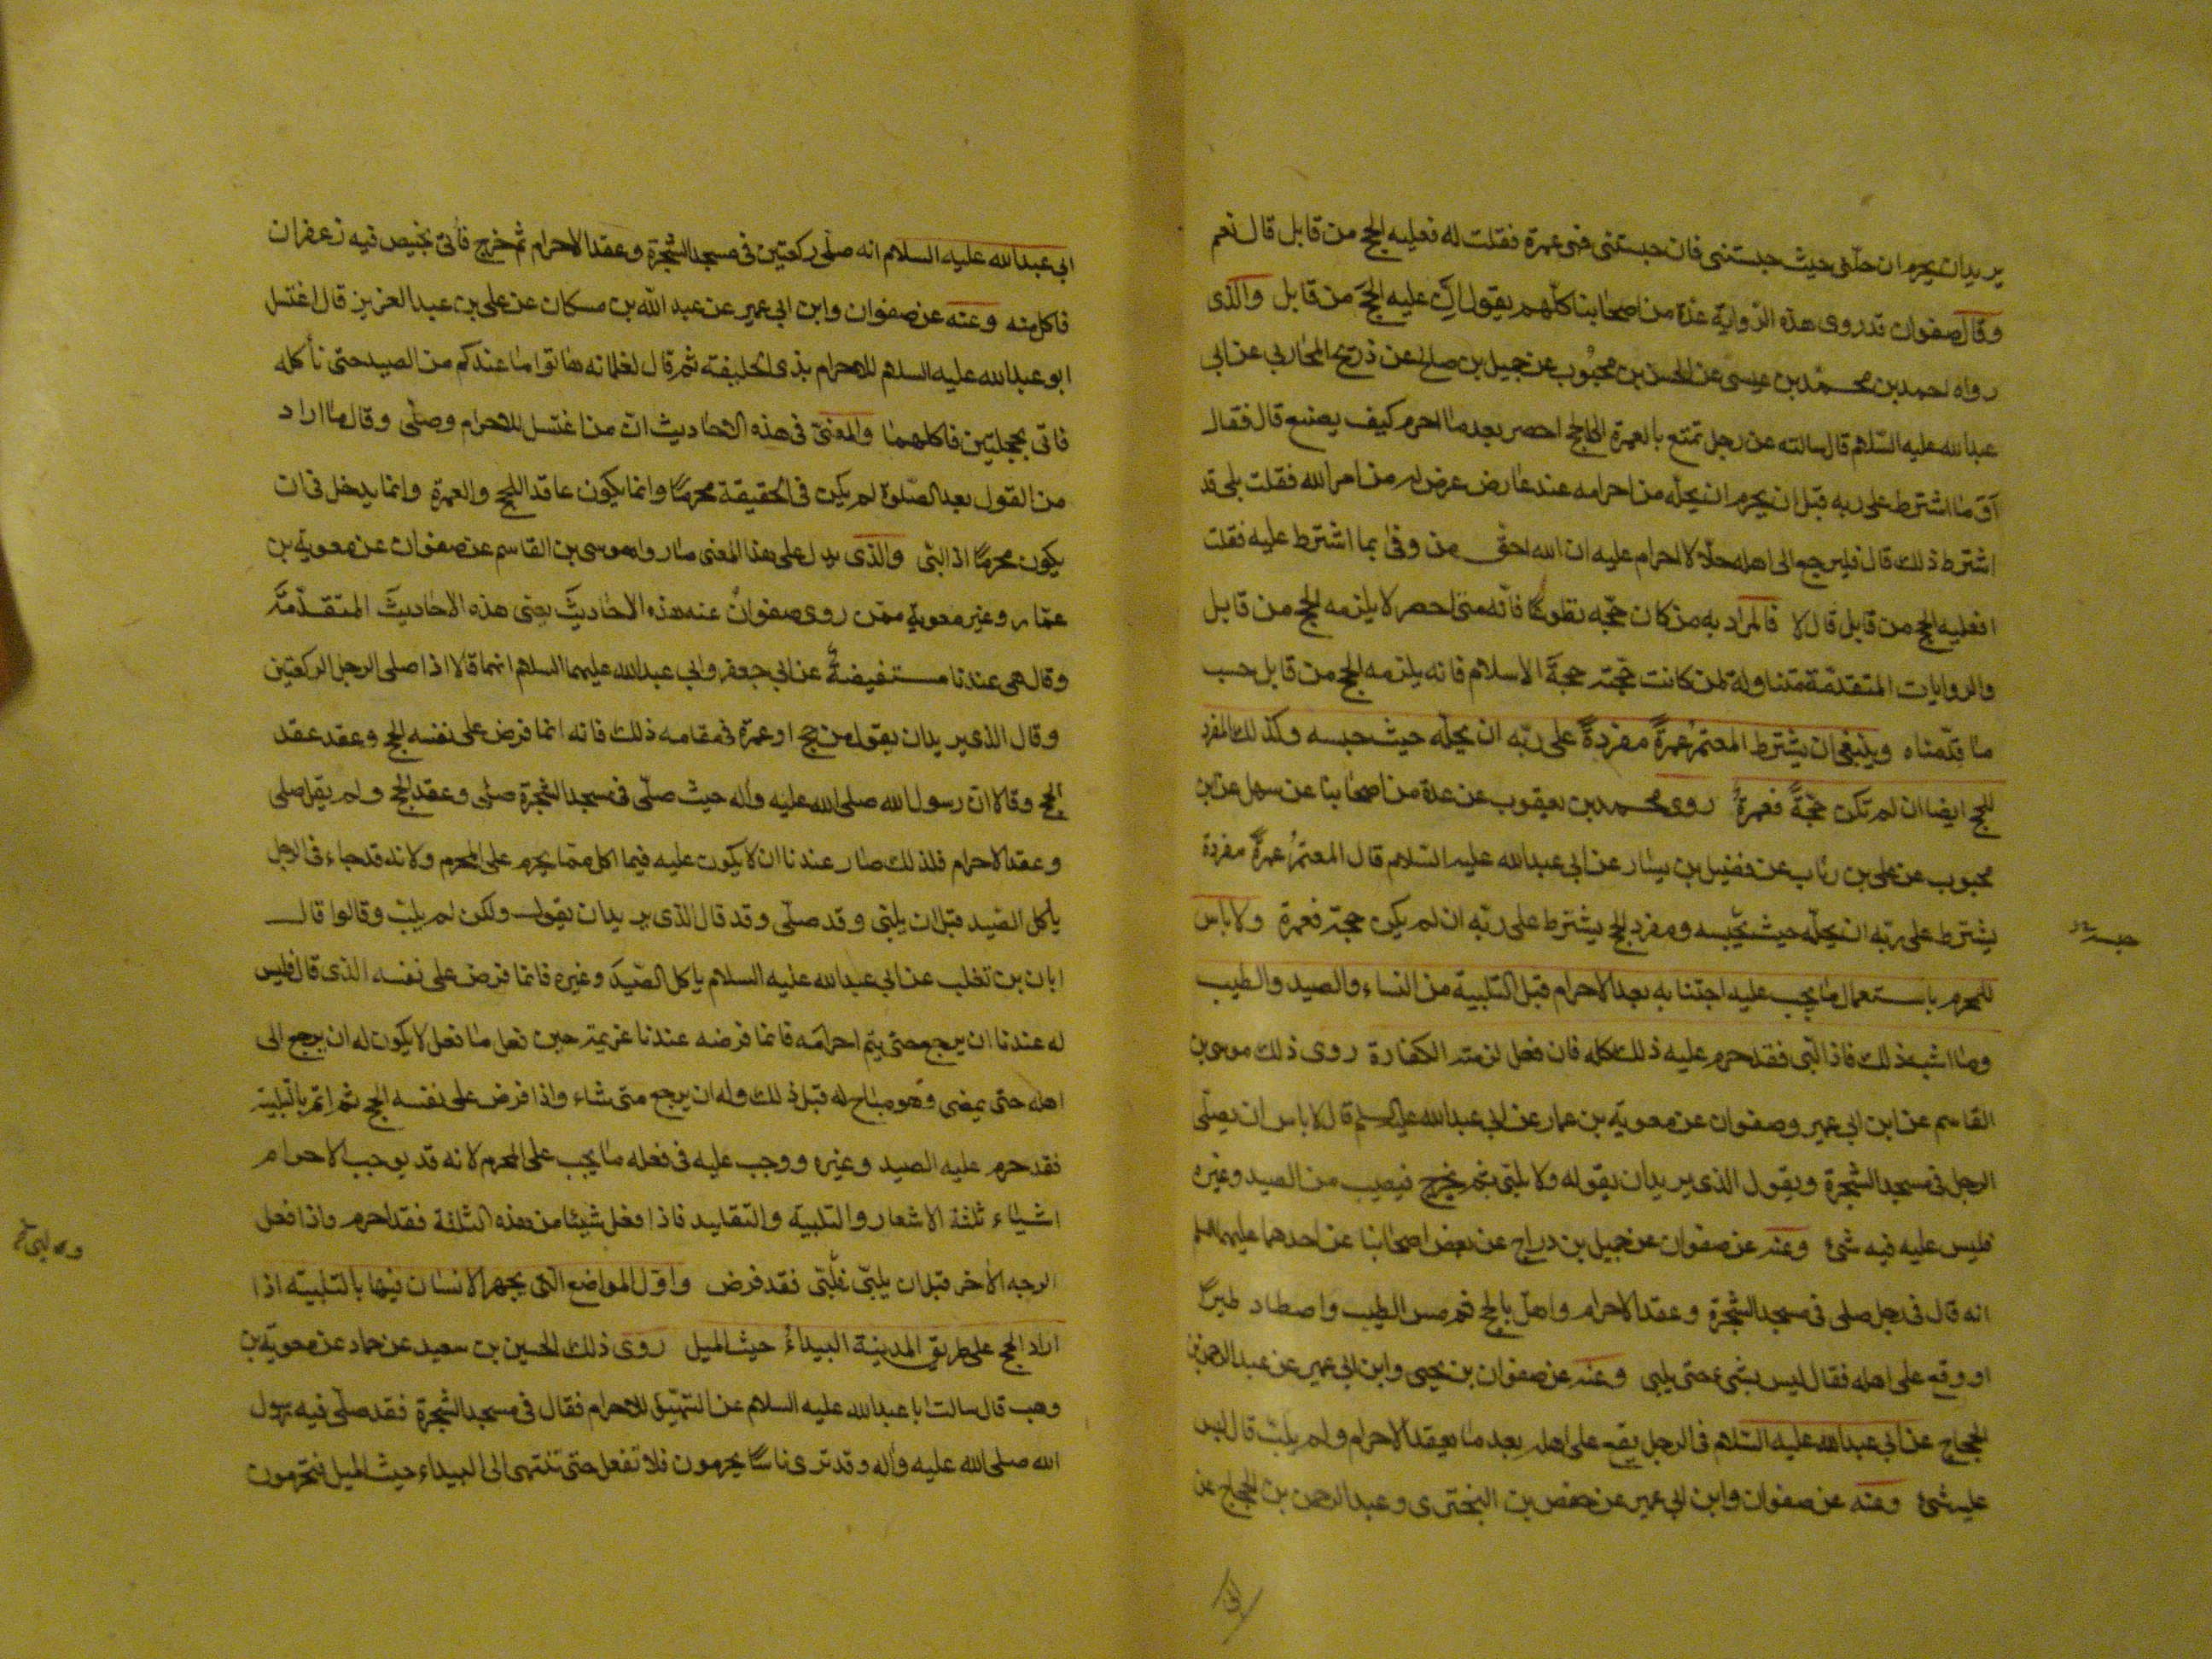 يريد ان يحرم ان حلّنى حيث حبستنى فان حبستنى فهى عمرة فقلت له فعليه الحج من قابل قال نعم
وقال صفوان قد روى هذه الرّواية عدّة من اصحابنا كلّهم يقول انّ عليه الحجّ من قابل والّذى
رواه احمد بن محمّد بن عيسى عن الحسن بن محبُوب عن جميل بن صالح عن ذريح المحاربي عن ابى
عبدالله عليه السّلام قال سالته عن رجل تمتع بالعمرة الى الحج احصر بعد ما احرم كيف يصنع قال فقال
اوَما اشترط على ربه قبل ان يحرم ان يحلّه من احرامه عند عارض عرض له من امر الله فقلت بلى قد
اشترط ذلك قال فليرجع الى اهله حلّا لا احرام عليه ان الله احقّ من وفى بما اشترط عليه فقلت
افعليه الحج من قابل قال لا فالمراد به من كان حجّه تطوعًا فانّه متى احصر لا يلزمه الحج من قابل
والروايات المتقدّمة متناولة لمن كانت حجّته حجةَ الاسلام فانه يلزمه الحج من قابل حسب
ما قدّمناه وينبغى ان يشترط المعتمرُ عمرةً مفردةً على ربّه ان يحلّه حيث حبسه وكذلك المفرد
للحج ايضا ان لم تكن حجّةً فعمرةً روى محمد بن يعقوب عن عدة من اصحابنا عن سهل عن ابن
محبوب عن على بن رئاب عن فضيل بن يسار عن ابى عبدالله عليه السّلام قال المعتمرُ عمرةً مفردة
يشترط على ربّه ان يحلّه حيث يحبسه ومفرد الحج يشترط على ربّه ان لم يكن حجة فعمرة ولا باس
حبسه
للمحرم باستعمال ما يجب عليه اجتنابه بعد الاحرام قبل التلبية من النساء والصيد والطيب
وما اشبه ذلك فاذا لبّى فقد حرم عليه ذلك كله فان فعل لزمته الكفارة روى ذلك موسى بن
القاسم عن ابن ابى عمير وصفوان عن معوية بن عمار عن ابى عبدالله عليه السلم قال لا باس ان يصلّى
الرجل فى مسجد الشّجرة ويقول الذى يريد ان يقوله ولا يلبّى ثم يخرج فيصيب من الصيد وغيره
فليس عليه فيه شئ وعنه عن صفوان عن جميل بن دراج عن بعض اصحابنا عن احدهما عليهما السلم
انه قال فى رجل صلى فى مسجد الشجرة وعقد الاحرام واهلّ بالحج ثم مس الطيب واصطاد طيرًا
او وقع على اهله فقال ليس بشئ حتى يلبى وعنه عن صفوان بن يحيى وابن ابى عمير عن عبد الرحمن بن
الحجاج عن ابى عبدالله عليه السّلام فى الرجل يقع على اهله بعد ما يعقد الاحرام ولم يلبّ قال ليس
عليه شئ وعنه عن صفوان وابن ابى عمير عن حفص بن البخترى وعبد الرحمن بن الحجاج عن
ابى عبدالله عليه السلام انه صلّى ركعتين فى مسجد الشّجرة وعقد الاحرام ثم خرج فأتى بخبيص فيه زعفران
فاكل منه وعنه عن صفوان وابن ابى عمير عن عبد الله بن مسكان عن على بن عبد العزيز قال اغتسل
ابو عبدالله عليه السلام للاحرام بذى الحليفة ثم قال لغلمانه هاتوا ما عندكم من الصيد حتى نأكله
فاتى بحجلتين فاكلهما والمعنى فى هذه الاحاديث انّ من اغتسل للاحرام وصلّى وقال ما اراد
من القول بعد الصّلوة لم يكن فى الحقيقة محرمًا وانما يكون عاقدا للحج والعمرة وانما يدخل فى ان
يكون محرمًا اذا لبّى والذى يدل على هذا المعنى ما رواه موسى بن القاسم عن صفوان عن معوية بن
عمّار وغير معوية ممّن روى صفوانُ عنه هذه الاحاديثَ يعنى هذه الاحاديثَ المتقدّمةَ
وقال هى عندنا مستفيضةٌ عن ابى جعفر وابى عبدالله عليهما السلام انهما قالا اذا صلى الرجل الركعتين
وقال الذى يريد ان يقول من حج او عمرة فى مقامه ذلك فانه انما فرض على نفسه الحج وعقد عقد
الحج وقالا انّ رسول الله صلى الله عليه واله حيث صلّى فى مسجد الشجرة صلى وعقد الحج ولم يقل صلى
وعقد الاحرام فلذلك صار عندنا ان لا يكون عليه فيما اكل ممّا يحرم على المحرم ولانه قد جاء فى الرجل
يأكل الصّيد قبل ان يلبّى وقد صلّى وقد قال الذى يريد ان يقول ولكن لم يلبّ وقالوا قال
ابان بن تغلب عن ابى عبدالله عليه السلام ياكل الصّيدَ وغيره فانما فرض على نفسه الذى قال فليس
له عندنا ان يرجع حتى يتم احرامه فانما فرضه عندنا عزيمة حين فعل ما فعل لا يكون له ان يرجع الى
اهله حتى يمضى وهو مباح له قبل ذلك وله ان يرجع متى شاء واذا فرض على نفسه الحج ثم اتم بالتّلبية
فقد حرم عليه الصيد وغيره ووجب عليه فى فعله ما يجب على المحرم لانه قد يوجب الاحرام
اشياء ثلثة الاشعار والتلبية والتقليد فاذا فعل شيئا من هذه الثلثة فقد احرم واذا فعل
الوجه الاخر قبل ان يلبّى فلبّى فقد فرض واوّل المواضع التى يجهر الانسان فيها بالتلبية اذا
اراد الحج على طريق المدينة البيداءُ حيث الميل روى ذلك الحسين بن سعيد عن حماد عن معوية بن
وهب قال سالت ابا عبدالله عليه السلام عن التهيّؤ للاحرام فقال فى مسجد الشجرة فقد صلّى فيه رسول
الله صلى الله عليه واله وقد ترى ناسًا يحرمون فلا تفعل حتى تنتهى الى البيداء حيث الميل فتحرمون